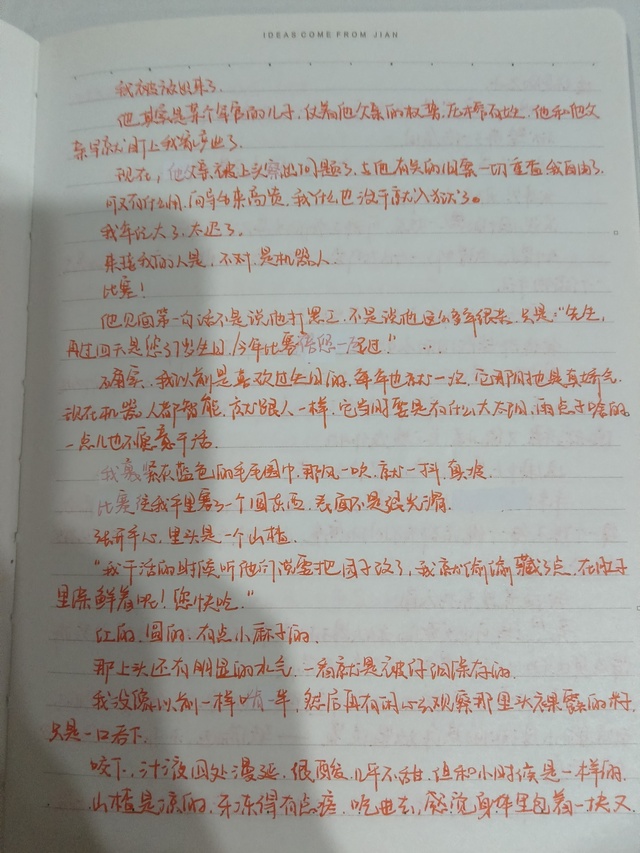 IDEAS COME FROM JIAN
我被放出来了.
他其实是某个军官的儿子, 仗着他父亲的权势, 他和他父
亲早就盯上我家产业了.
现在, 他父亲被上头察出问题了, 与他有关的旧案一切重查 我自由了.
可又有什么用, 向导向来高贵, 我什么也没干就入狱了。
我年纪大了, 太迟了.
来接我的人是, 不对, 是机器人.
比赛!
他见面第一句话不是说他打黑工, 不是说他这么多年很苦, 只是: "先生,
再过四天是您37岁生日, 今年比赛陪您一起过."
确实, 我以前是喜欢过生日的, 每年也就一次, 它那时也是真娇气.
现在机器人都智能, 就跟人一样, 它当时要是有什么大太阳, 雨点子啥的
一点儿也不愿意干活.
我裹紧灰蓝色的毛毛围巾, 那风一吹, 就一抖, 真冷.
比赛往我手里塞了一个圆东西, 表面不是很光滑.
张开手心, 里头是一个山楂.
"我干活的时候听他们说要把园子改了, 我就偷偷藏了点, 在肚子
里保鲜着呢! 您快吃."
红的, 圆的, 有点小麻子的.
那上头还有明显的水气, 一看就是被仔细保存的.
我没像以前一样啃一半, 然后再有闲心去观察那里头裸露的籽,
只是一口吞下.
咬下, 汁液四处漫延, 很酸, 几乎不甜, 但和小时候是一样的.
山楂是凉的, 牙冻得有点疼, 吃进去, 感觉身体里包着一块又